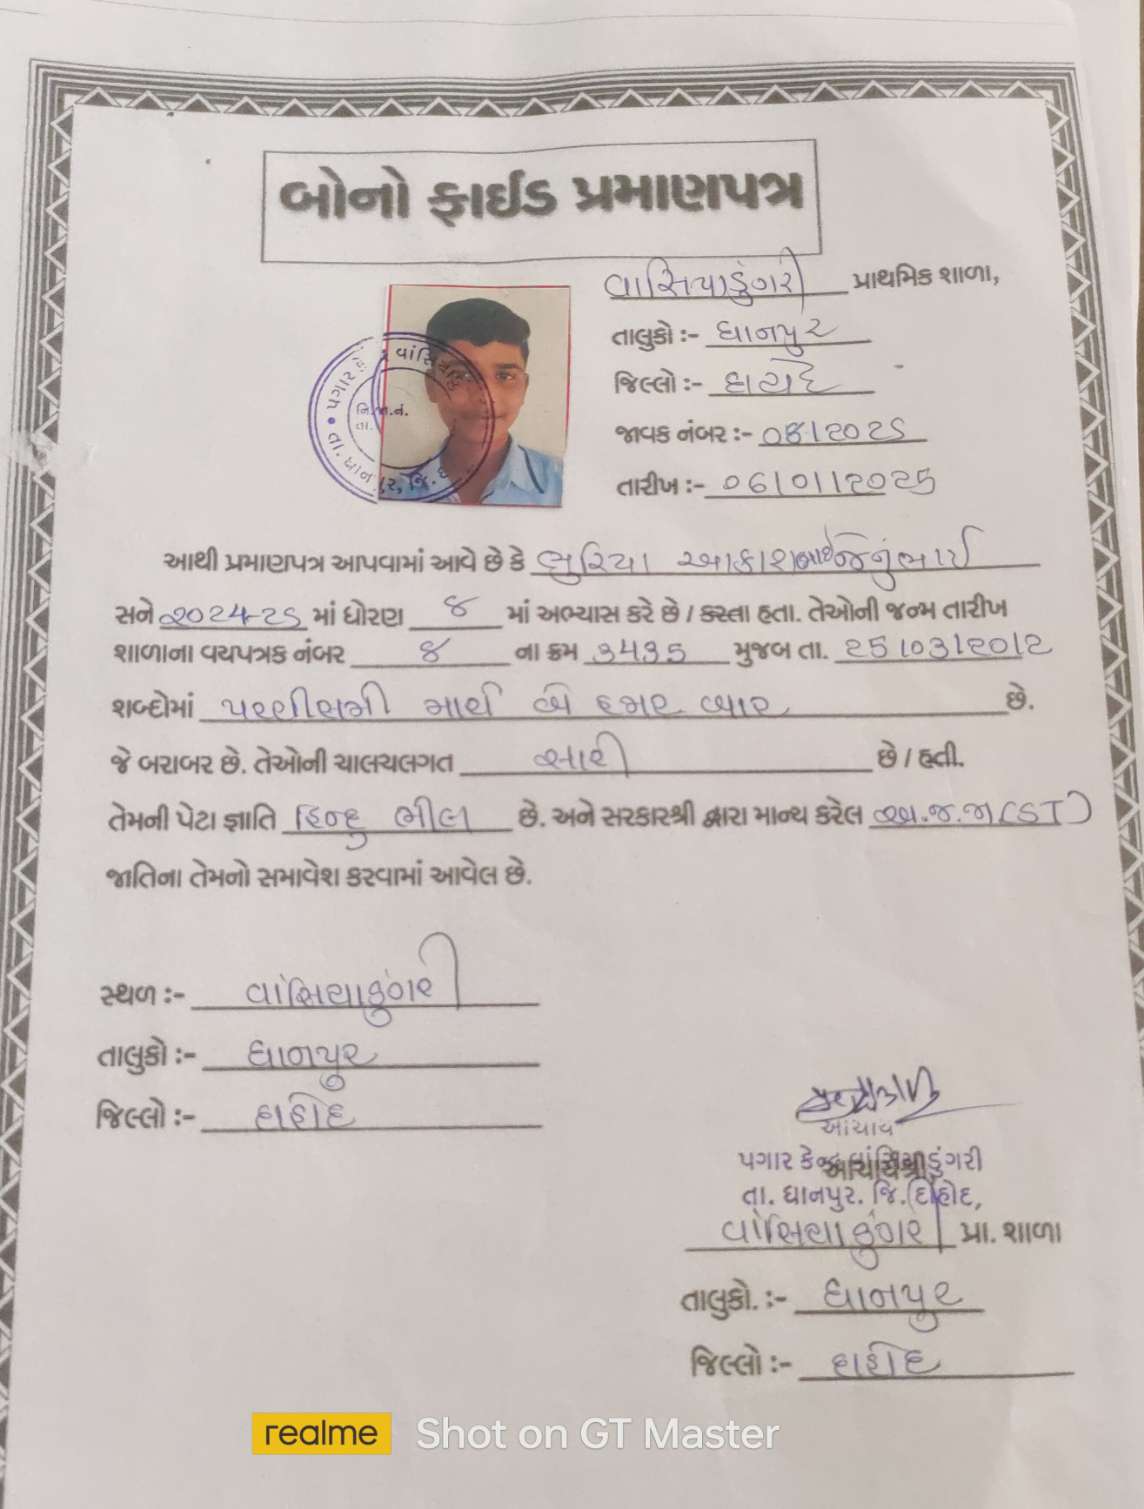 બોનો ફાઈડ પ્રમાણપત્ર
વાસિયાડુંગરી પ્રાથમિક શાળા,
તાલુકો :- ધાનપુર
જિલ્લો :- દાહોદ
જાવક નંબર :-
તારીખ :- ૦6/૦1/૨૦૨5
આથી પ્રમાણપત્ર આપવામાં આવે છે કે ભુરિયા આકાશભાઇ
સને ૨૦24-૨5 માં ધોરણ ૪ માં અભ્યાસ કરે છે / કરતા હતા. તેઓની જન્મ તારીખ
શાળાના વયપત્રક નંબર ૪ ના ક્રમ 3435 મુજબ તા. ૨5/૦3/૨૦1૨
શબ્દોમાં પચ્ચીસમી માર્ચ બે હજાર બાર છે.
જે બરાબર છે. તેઓની ચાલચલગત સારી છે / હતી.
તેમની પેટા જ્ઞાતિ હિન્દુ ભીલ છે. અને સરકારશ્રી દ્વારા માન્ય કરેલ અ.જ.જા(ST)
જાતિના તેમનો સમાવેશ કરવામાં આવેલ છે.
સ્થળ :- વાંસિયાડુંગરી
તાલુકો :- ધાનપુર
જિલ્લો :- દાહોદ
આચાર્ય
પગાર કેન્દ્ર વાંસિયાડુંગરી
આચાર્યશ્રી
તા. ધાનપુર. જિ. દાહોદ,
વાંસિયાડુંગરી પ્રા. શાળા
તાલુકો. :- ધાનપુર
જિલ્લો :- દાહોદ
realme Shot on GT Master